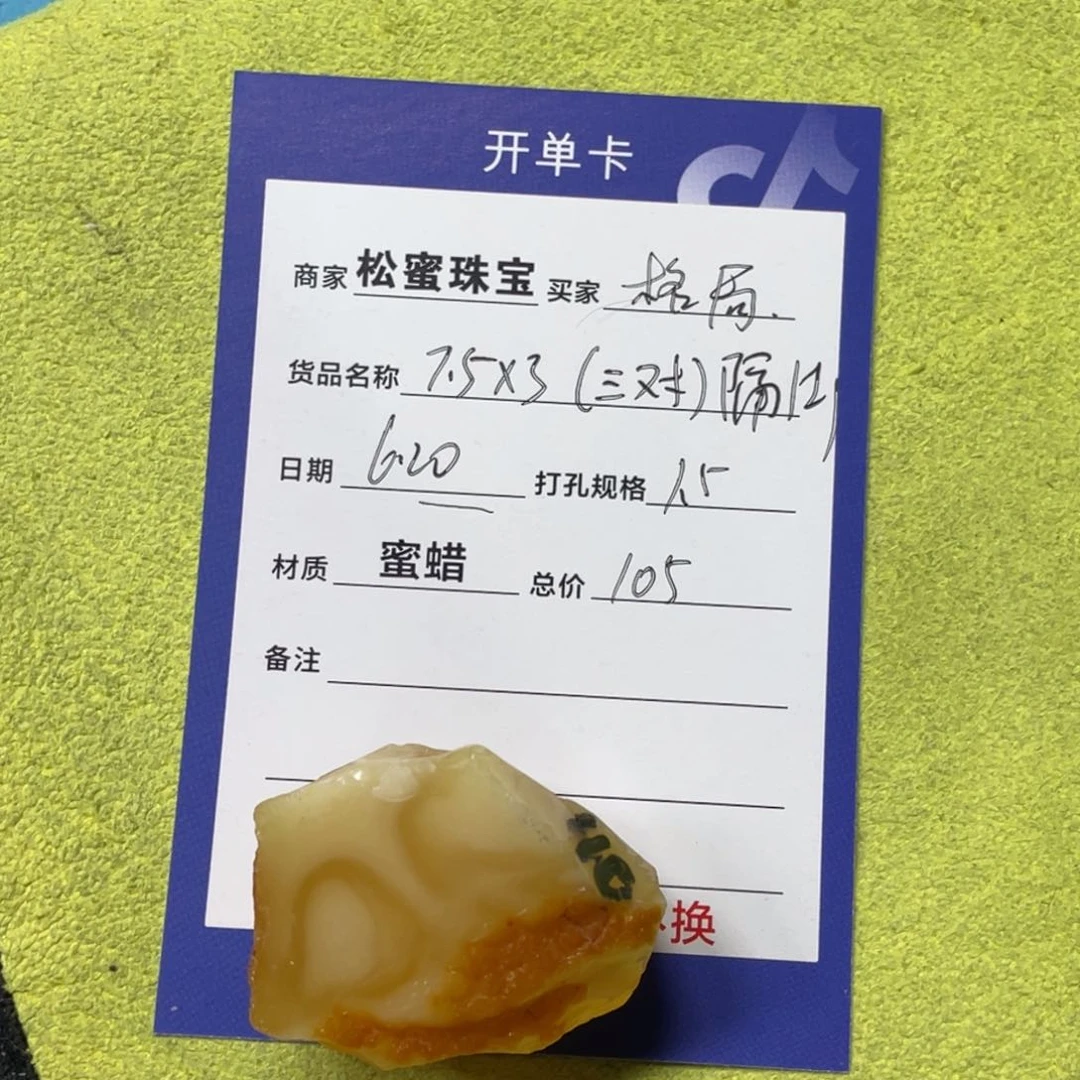 开单卡
商家 松蜜珠宝 买家 格局.
货品名称 7.5X3 (三对) 隔片
日期 6.20 打孔规格 1.5
材质 蜜蜡 总价 105
备注
换